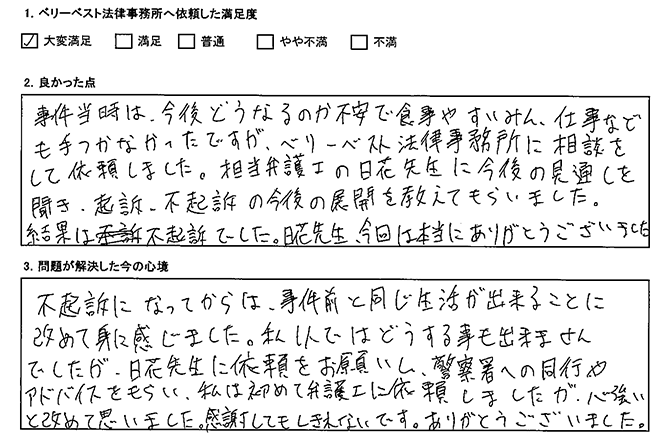 1. ベリーベスト法律事務所へ依頼した満足度
☑ 大変満足 □ 満足 □ 普通 □ やや不満 □ 不満
2. 良かった点
事件当時は、今後どうなるのか不安で食事やすいみん、仕事なども手つかなかったですが、ベリーベスト法律事務所に相談を
して依頼しました。相当弁護士の日花先生に今後の見通しを
聞き、起訴、不起訴の今後の展開を教えてもらいました。
結果は不起訴でした。日花先生、今回は本当にありがとうございました
3. 問題が解決した今の心境
不起訴になってからは、事件前と同じ生活が出来ることに
改めて身に感じました。私1人ではどうする事も出来ません
でしたが、日花先生に依頼をお願いし、警察署への同行や
アドバイスをもらい、私は初めて弁護士に依頼しましたが、心強い
と改めて思いました。感謝してもしきれないです。ありがとうございました。